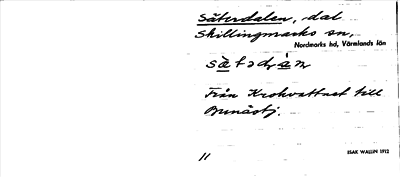 Säterdalen, dal
Skillingmarks sn,
Nordmarks hd, Värmlands län
Från Krokvattnet till
11
ISAK WALLIN 1912